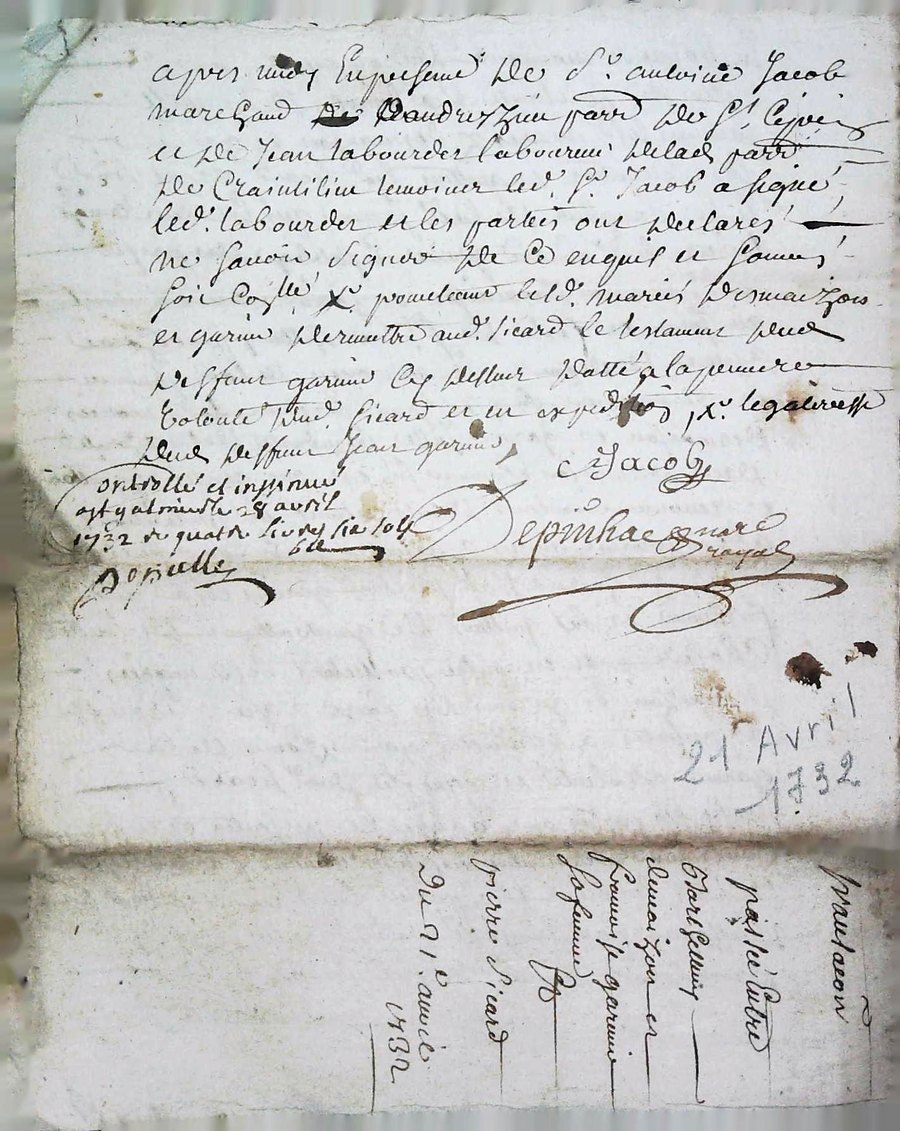 apres midy En presence de Sr. antoine Jacob
marchand de parr de St. Ciprien
et de Jean labourder laboureur delad parr
de Craintilieu temoins led. Sr. Jacob a signé
led. labourder et les parties ont declarés
ne savoir signer de ce enquis et sommés
soit Coñllé, &. promettant lesd. mariés desmaizon
et garine de remettre aud. sicard le testament dud
deffunt garine cy dessus datté a la premiere
volonté dud. sicard et en expedition
dud deffunt Jean garine,
A Jacob
Controllé et insinué
a st galmier le 28 avril
1732 R quatre livres six sols
Depinhac nore
royal
21 Avril
1732
transaõn
passée Entre
Barthelemy
demaizon et
francoise garine
sa femme Et
pierre Sicard
Du 21e. avril
1732